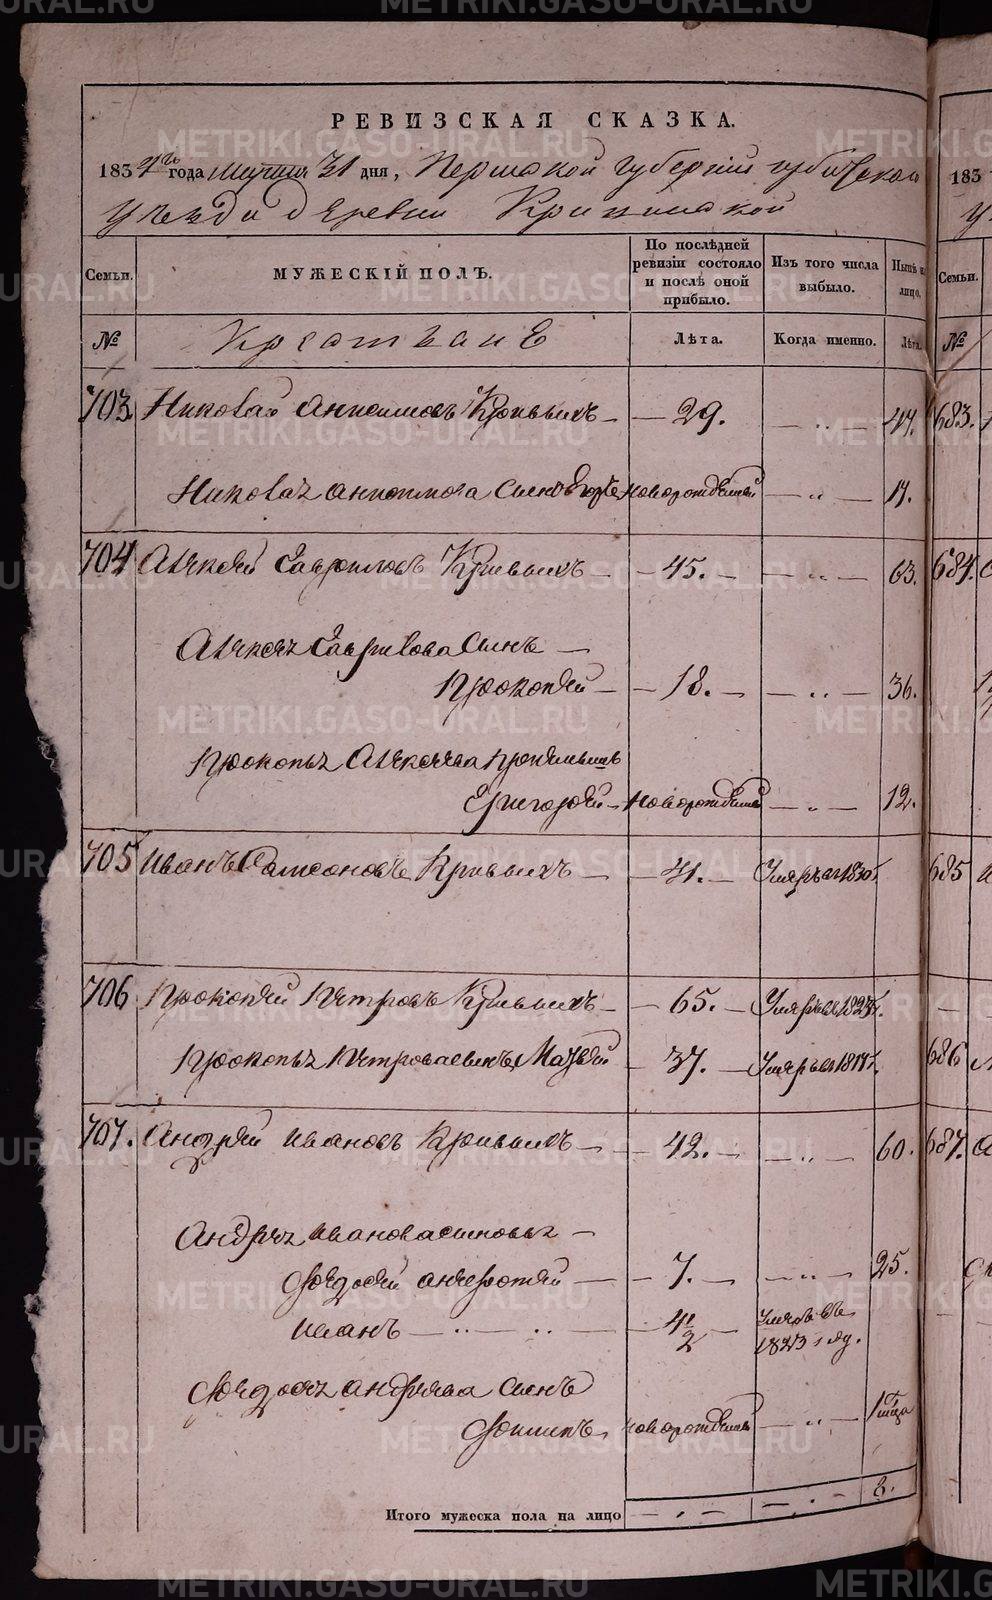 РЕВИЗСКАЯ СКАЗКА.
1834го года Марта 31 дня, Пермской Губернии Ирбитскаго
Уѣзда деревни
Семьи. МУЖЕСКІЙ ПОЛЪ. По послѣдней ревизіи состояло и послѣ оной прибыло. Изъ того числа выбыло. Нынѣ на лицо.
№ Крестьяне Лѣта. Когда именно. Лѣта.
703 Николай Анисимовъ Кривыхъ — 29. — „ — 47.
Николая Анисимова сынъ Егоръ новорожденный — „ — 17.
704 Алексей Гавриловъ Кривыхъ — 45. — „ — 63.
Алексея Гаврилова Сынъ —
Прокопей — 18. — „ — 36.
Прокопья Алексеева
Григорей — новорожденный — „ — 12.
705 Иванъ Самсоновъ Кривыхъ — 41. — Умеръ въ 1830 г.
706 Прокопей Петровъ Кривыхъ — 65. — Умеръ въ 1823 г.
Прокопья Петрова сынъ Матвей 37. — Умеръ въ 1817 г.
707. Андрей Ивановъ Кривыхъ — 42. — „ — 60.
Андрея Иванова сыновья —
Федосей — 7. — „ — 25.
Иванъ — „ — „ — 4½ — умеръ въ 1823 году.
Федосея Андреева сынъ
новорожденный — „ — 1 мца
Итого мужеска пола на лицо — „ — — „ — 8.
183
Семьи.
№
683.
684.
685
686
687.
METRIKI.GASO-URAL.RU